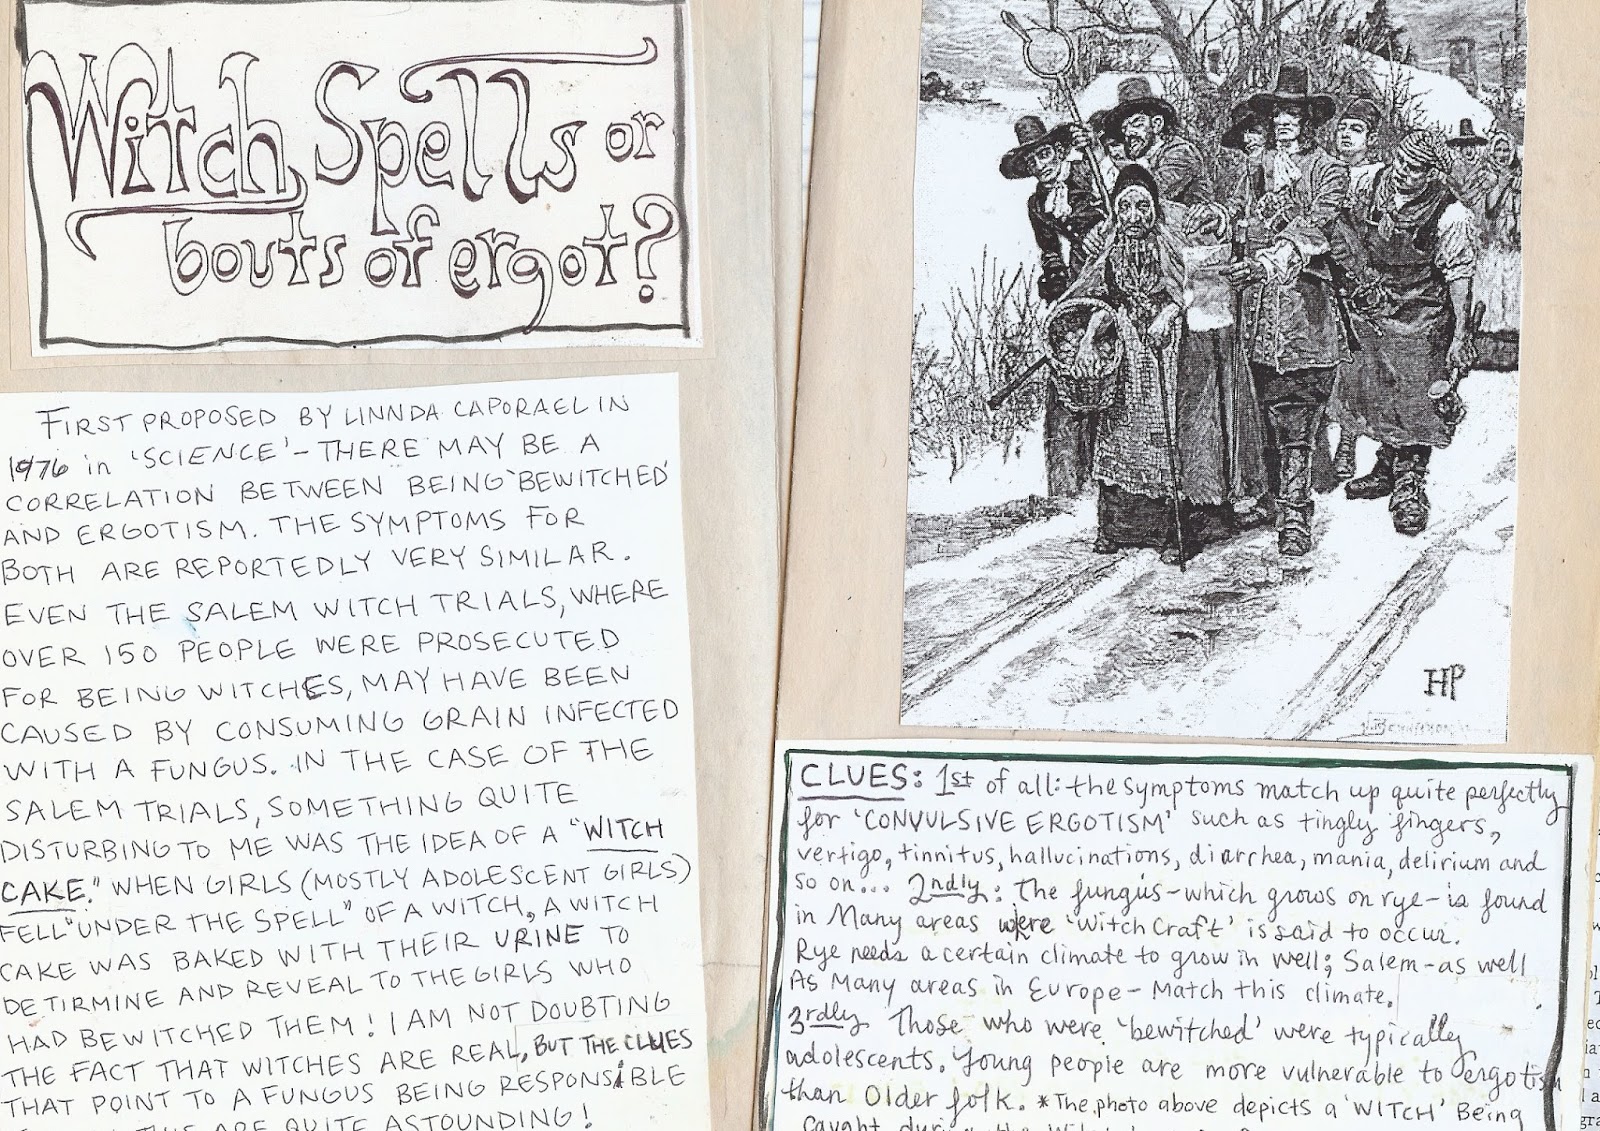 Witch Spells or
bouts of ergot?
FIRST PROPOSED BY LINNDA CAPORAEL IN
1976 in 'SCIENCE' - THERE MAY BE A
CORRELATION BETWEEN BEING 'BEWITCHED'
AND ERGOTISM. THE SYMPTOMS FOR
BOTH ARE REPORTEDLY VERY SIMILAR.
EVEN THE SALEM WITCH TRIALS, WHERE
OVER 150 PEOPLE WERE PROSECUTED
FOR BEING WITCHES, MAY HAVE BEEN
CAUSED BY CONSUMING GRAIN INFECTED
WITH A FUNGUS. IN THE CASE OF THE
SALEM TRIALS, SOMETHING QUITE
DISTURBING TO ME WAS THE IDEA OF A "WITCH
CAKE." WHEN GIRLS (MOSTLY ADOLESCENT GIRLS)
FELL "UNDER THE SPELL" OF A WITCH, A WITCH
CAKE WAS BAKED WITH THEIR URINE TO
DETIRMINE AND REVEAL TO THE GIRLS WHO
HAD BEWITCHED THEM! I AM NOT DOUBTING
THE FACT THAT WITCHES ARE REAL, BUT THE CLUES
THAT POINT TO A FUNGUS BEING RESPONSIBLE
ARE QUITE ASTOUNDING!
HP
CLUES: 1st of all: the symptoms match up quite perfectly
for 'CONVULSIVE ERGOTISM' such as tingly fingers,
vertigo, tinnitus, hallucinations, diarrhea, mania, delirium and
so on... 2ndly: the fungus - which grows on rye - is found
in Many areas were 'WitchCraft' is said to occur.
Rye needs a certain climate to grow in well; Salem - as well
As Many areas in Europe - Match this climate.
3rdly Those who were 'bewitched' were typically
adolescents. Young people are more vulnerable to ergotism
than Older folk. *The photo above depicts a 'WITCH' Being
caught during the